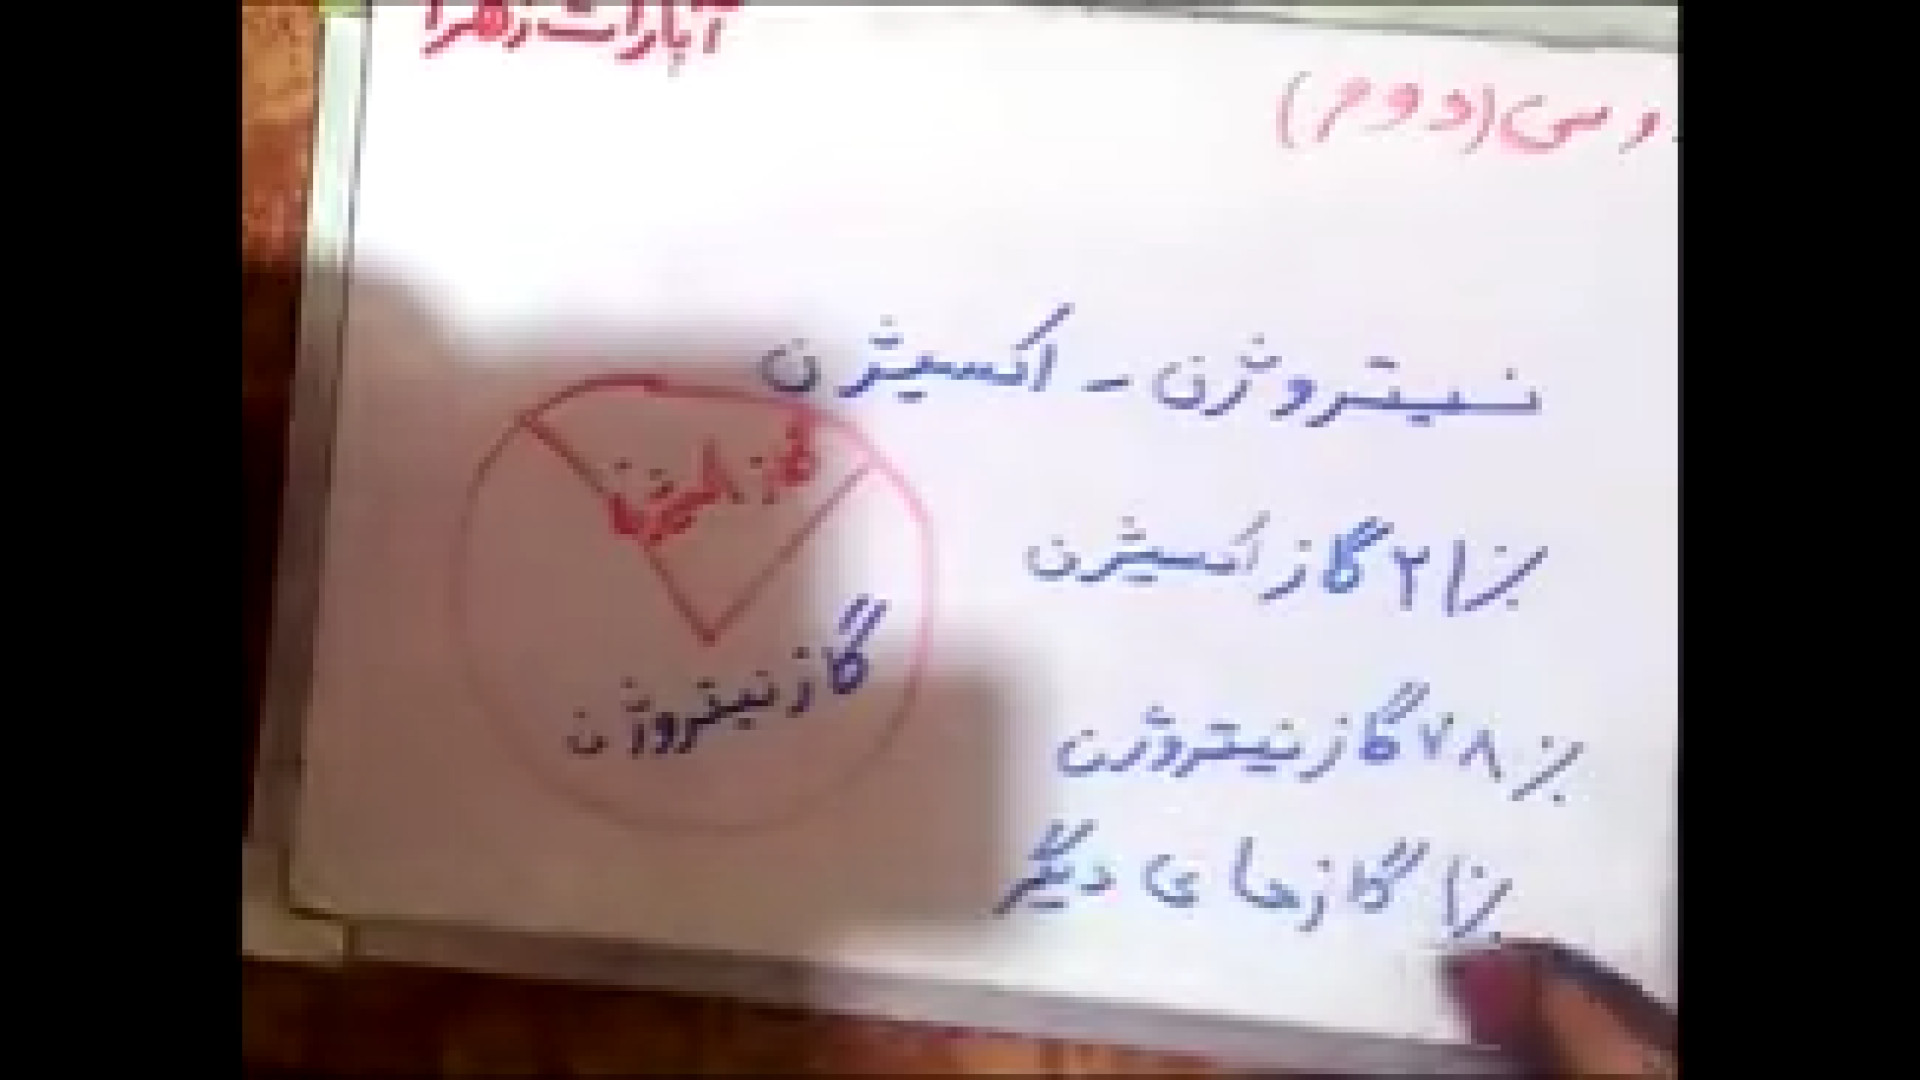 آپارات زهرا
(دوم)
نیتروژن - اکسیژن
٪۲۱ گاز اکسیژن
٪۷۸ گاز نیتروژن
٪۱ گازهای دیگر
گاز اکسیژن
گاز نیتروژن